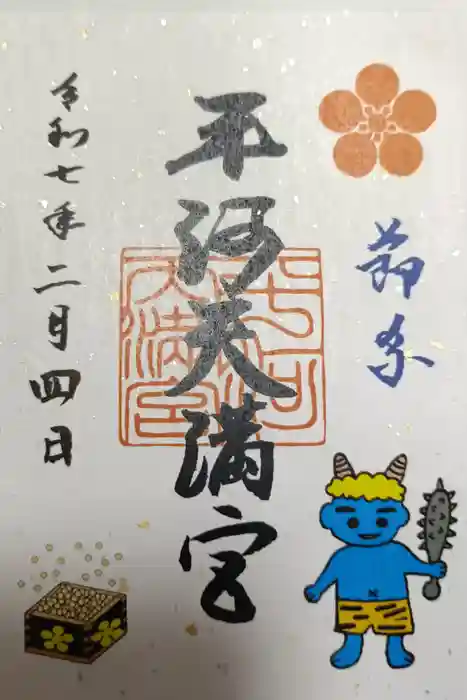 節分
平河天満宮
令和七年二月四日
平河天満宮